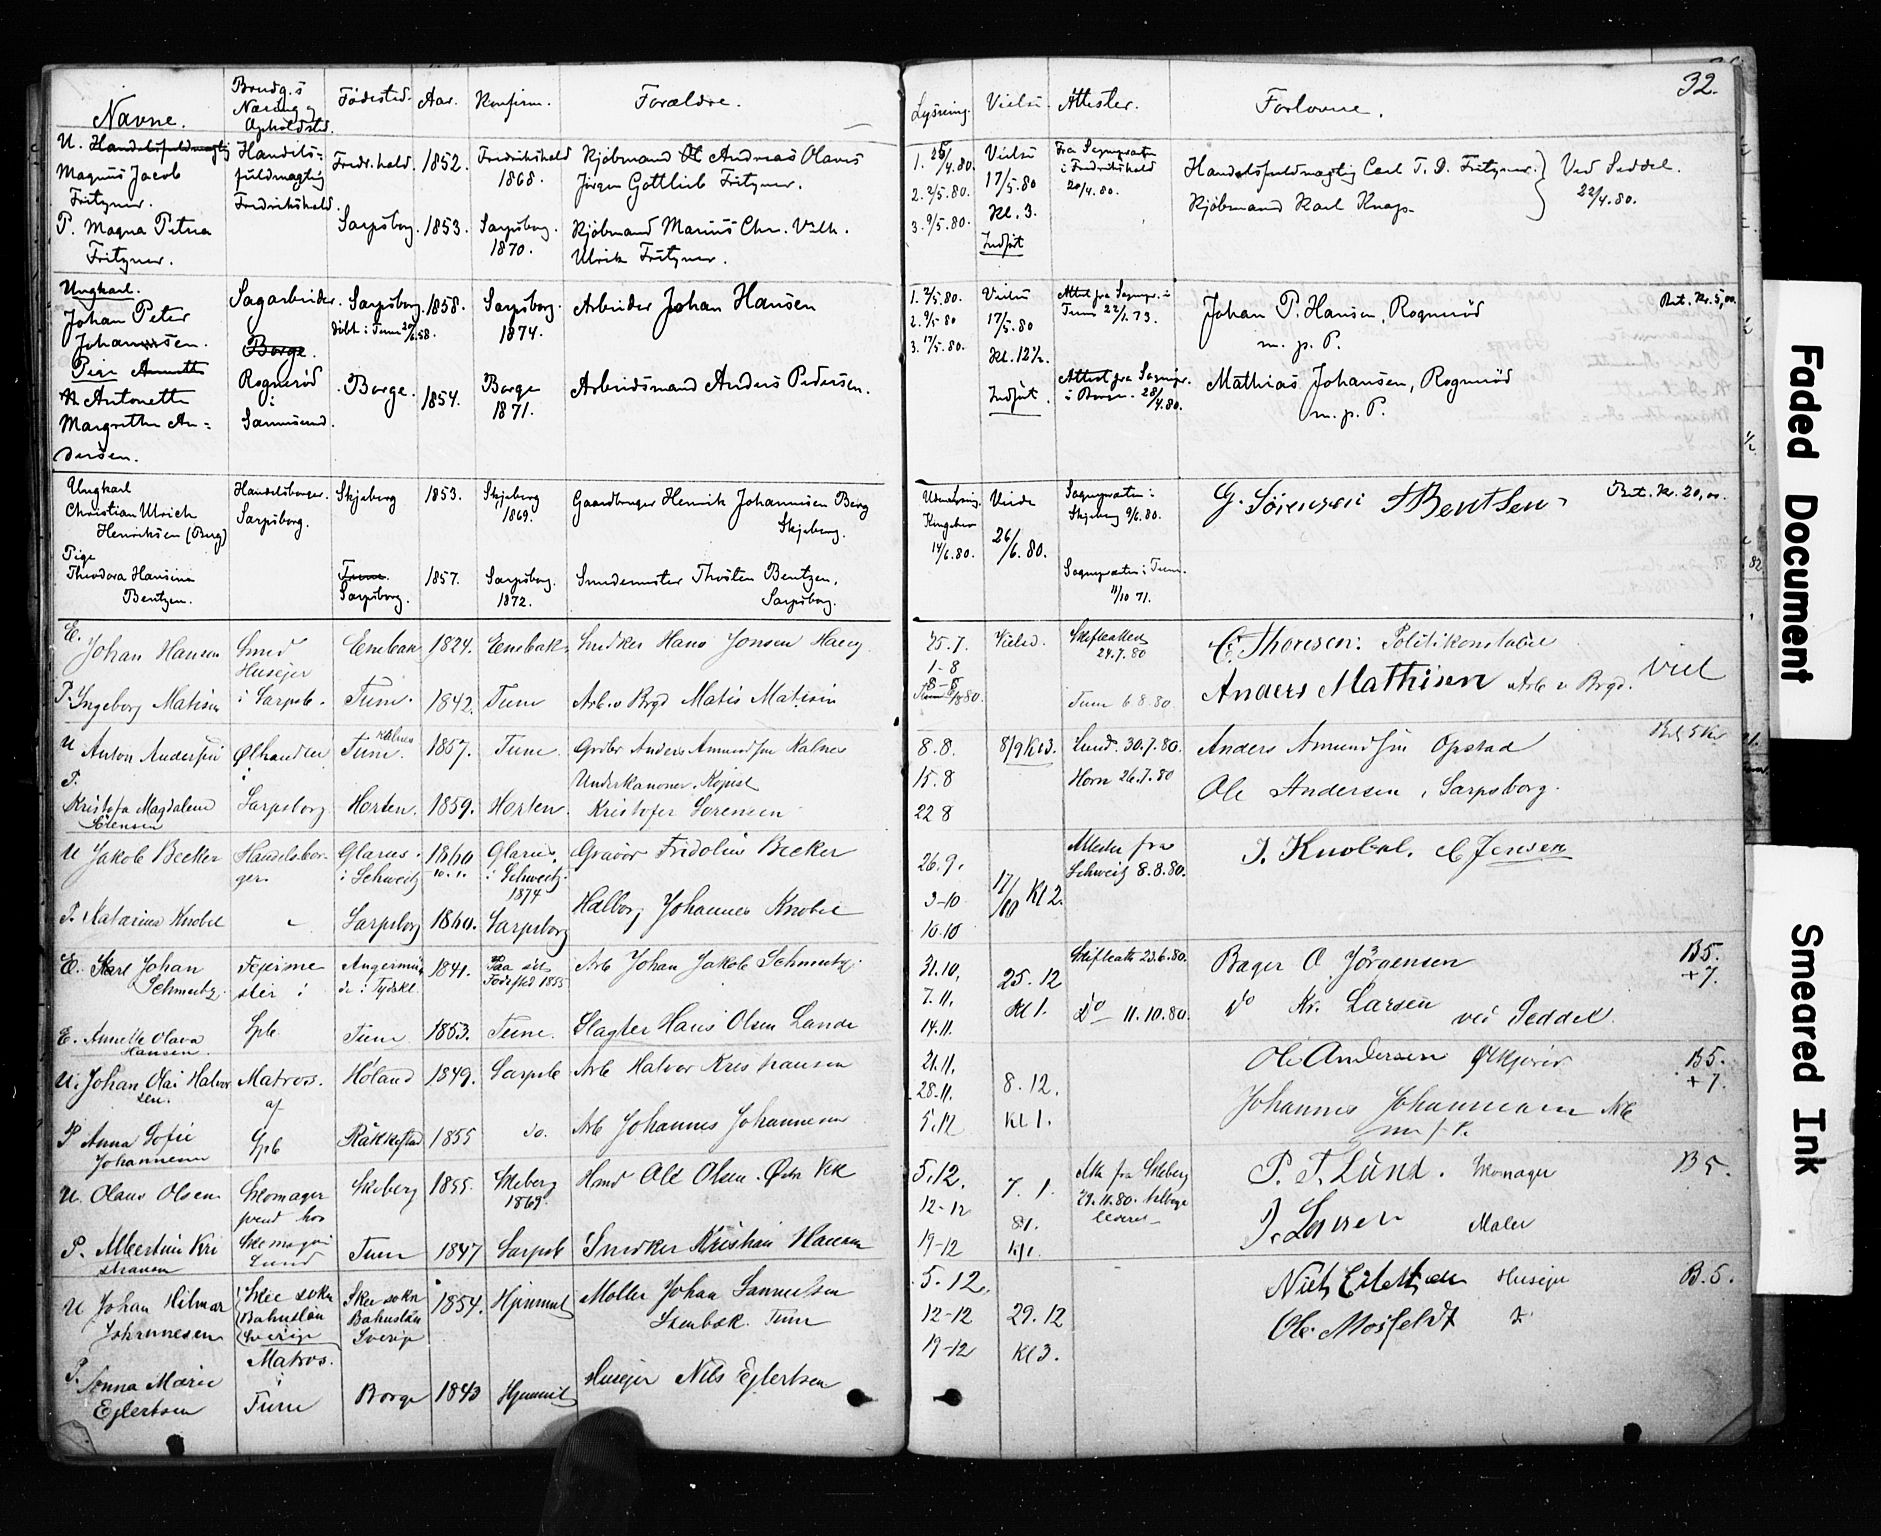 Navne.
Brudg.s
Næring og
Opholdsted.
Fødested.
Aar.
Konfirm.
Forældre.
Lysning.
Vielse.
Attester.
Forlovne.
32.
U. Handelsfuldmægtig
Magnus Jacob
Fritzner.
Handels-
fuldmægtig
Fredrikshald.
Fredr.hald.
1852.
Fredrikshald
1868.
Kjøbmand Ol Andreas Olaves
Jörgen Gottlieb Fritzner.
P. Magna Petrea
Fritzner.
Sarpsborg.
1853.
Sarpsborg.
1870.
Kjøbmand Marius Chr. Vilh.
Ulrik Fritzner.
1. 25/4.80.
2. 2/5.80.
3. 9/5.80.
Vielse
17/5.80
Kl. 3.
Indført
Fra Sognepræsten
i Fredrikshald
20/4.80.
Handelsfuldmægtig Carl T. D. Fritzner.
Kjøbmand Karl Knap.
Ved Seddel.
22/4.80.
Ungkarl.
Johan Peter
Johannesen.
Sagarbeider.
Borge.
Rognerød
i
Sannesund.
Sarpsborg
døbt i Tune 20/6.58.
1858.
Sarpsborg.
1874.
Arbeider Johan Hansen
Pige Annette
Antonette
Margrethe An-
dersen.
Borge.
1854.
Borge
1871.
Arbeidsmand Anders Pedersen.
1. 2/5.80.
2. 9/5 80
3. 17/5.80.
Vielse
17/5.80
Kl. 12½.
Indført.
Attest fra Sognepr. i
Tune 22/1.73.
Attest fra Sognepr.
i Borge. 28/4.80.
Johan P. Hansen, Rognerød
m. p. P.
Mathias Johansen, Rognerød
m. p. P.
Bet. Kr. 5,00.
Ungkarl
Christian Ulrich
Henriksen (Berg)
Handelsborger.
Sarpsborg.
Skjeberg
1853.
Skjeberg
1869.
Gaardbruger Henrik Johannesen Berg
Skjeberg.
Pige
Theodora Hansine
Bentzen.
Tune.
Sarpsborg.
1857.
Sarpsborg.
1872.
Smedemester Thosten Bentzen,
Sarpsborg.
14/6.80.
Viede
26/6.80.
Sognepræsten i
Skjeberg 9/6.80.
Sognepræsten i Tune.
11/10 71.
G. Sörensen TBentsen
Bet. Kr. 20,00.
E. Johan Hansen
Smed
Husejer
i Sarpsb.
Enebak
1824.
Enebak.
Snedker Hans Jonsen Haug
P. Ingeborg Matisen
Tune.
1842.
Tune
Arb. v Brgd Matis Matisen
25.7.
1-8
8-8
Vielsed.
Skifteattest
24.7.80
Tune 6 8.80.
C. Thoresen: Politikonstabel
Anders Mathisen Arb v Brgd.
Viel
U Anton Andersen
P.
Kristofa Magdalene
Sörensen
Ølhandler
i
Sarpsborg
Kalnes
Tune.
1857.
Tune
Grdbr Anders Amundsen Kalnes
Horten.
1859.
Horten.
Underkanoner. Kopist
Kristofer Sorensen
8.8.
15.8
22 8
8/9 Kl 3.
Lund. 30.7.80.
Horn 26.7.80
Anders Amundsen Opstad
Ole Andersen, Sarpsborg.
Bet. 5 Kr
U Jakob Becker
Handelsbor-
ger.
Glarus.
i Schweitz
1860
Glarus,
i Schweitz.
1874
Gravör Fridolin Becker
P. Katarina Knobel
Sarpsborg
1860.
Sarpsborg
Halborg Johannes Knobel
26.9.
3-10
10.10
17/10 Kl 2.
Attester fra
Schweitz 8.8.80.
J. Knobel. C Jensen
E. Karl Johan
Schmertz.
Fejerme
ster i
Spb.
Angermün
de i Tydskl.
1841.
Paa sit
Fødested 1855
Arb Johan Jakob Schmertz.
E. Annette Olava
Hansen.
Tune
1853.
Tune.
Slagter Hans Olsen Lande
31.10,
7.11,
14.11.
25.12
Kl 1.
Skifteatt 23.6.80.
Do 11.10.80.
Bager O Jörgensen
Do Kr. Larsen
ved Seddel.
B5.
+7.
U. Johan Olai Halvor
sen.
Matros.
af
Spb
Høland
1849.
Sarpsb
Arb Halvor Kristiansen
P Anna Sofie
Johannesen
Rakkestad
1855
do.
Arb Johannes Johannesen
21.11,
28.11.
5.12
8.12.
Kl 1.
Ole Andersen Ølkjører
Johannes Johannesen Arb
m f. P.
B5.
+7.
U. Olaus Olsen
Skomager
svend hos
Skomager
Lund
Skeberg
1855.
Skeberg
1869.
Hmd Ole Olsen. Østre Ek
P. Albertine Kri
stiansen
Tune
1847
Sarpsb
Snedker Kristian Hansen
5.12.
12-12
19-12
7. 1.
81.
Kl 1.
Att. fra Skeberg
29.11.80. tilbage
leveret
P. T. Lund. Skomager
J. Larsen Maler
B5.
U Johan Hilmar
Johannesen
Skee sokn
Bahuslän
Sverige
Matros.
i
Tune
Skee sokn
Bahuslän
Sverige
1854.
Hjemmet
Møller Johan Samuelsen
Stenbæk. Tune
P. Anna Marie
Ejlertsen
Borge
1843
Hjemmet
Husejer Nils Ejlertsen
5.12.
12-12
19-12
29.12
Kl 3.
Niels Eilertsen Husejer
Ole Mosfeldt
B.5.
Faded Document
Smeared Ink